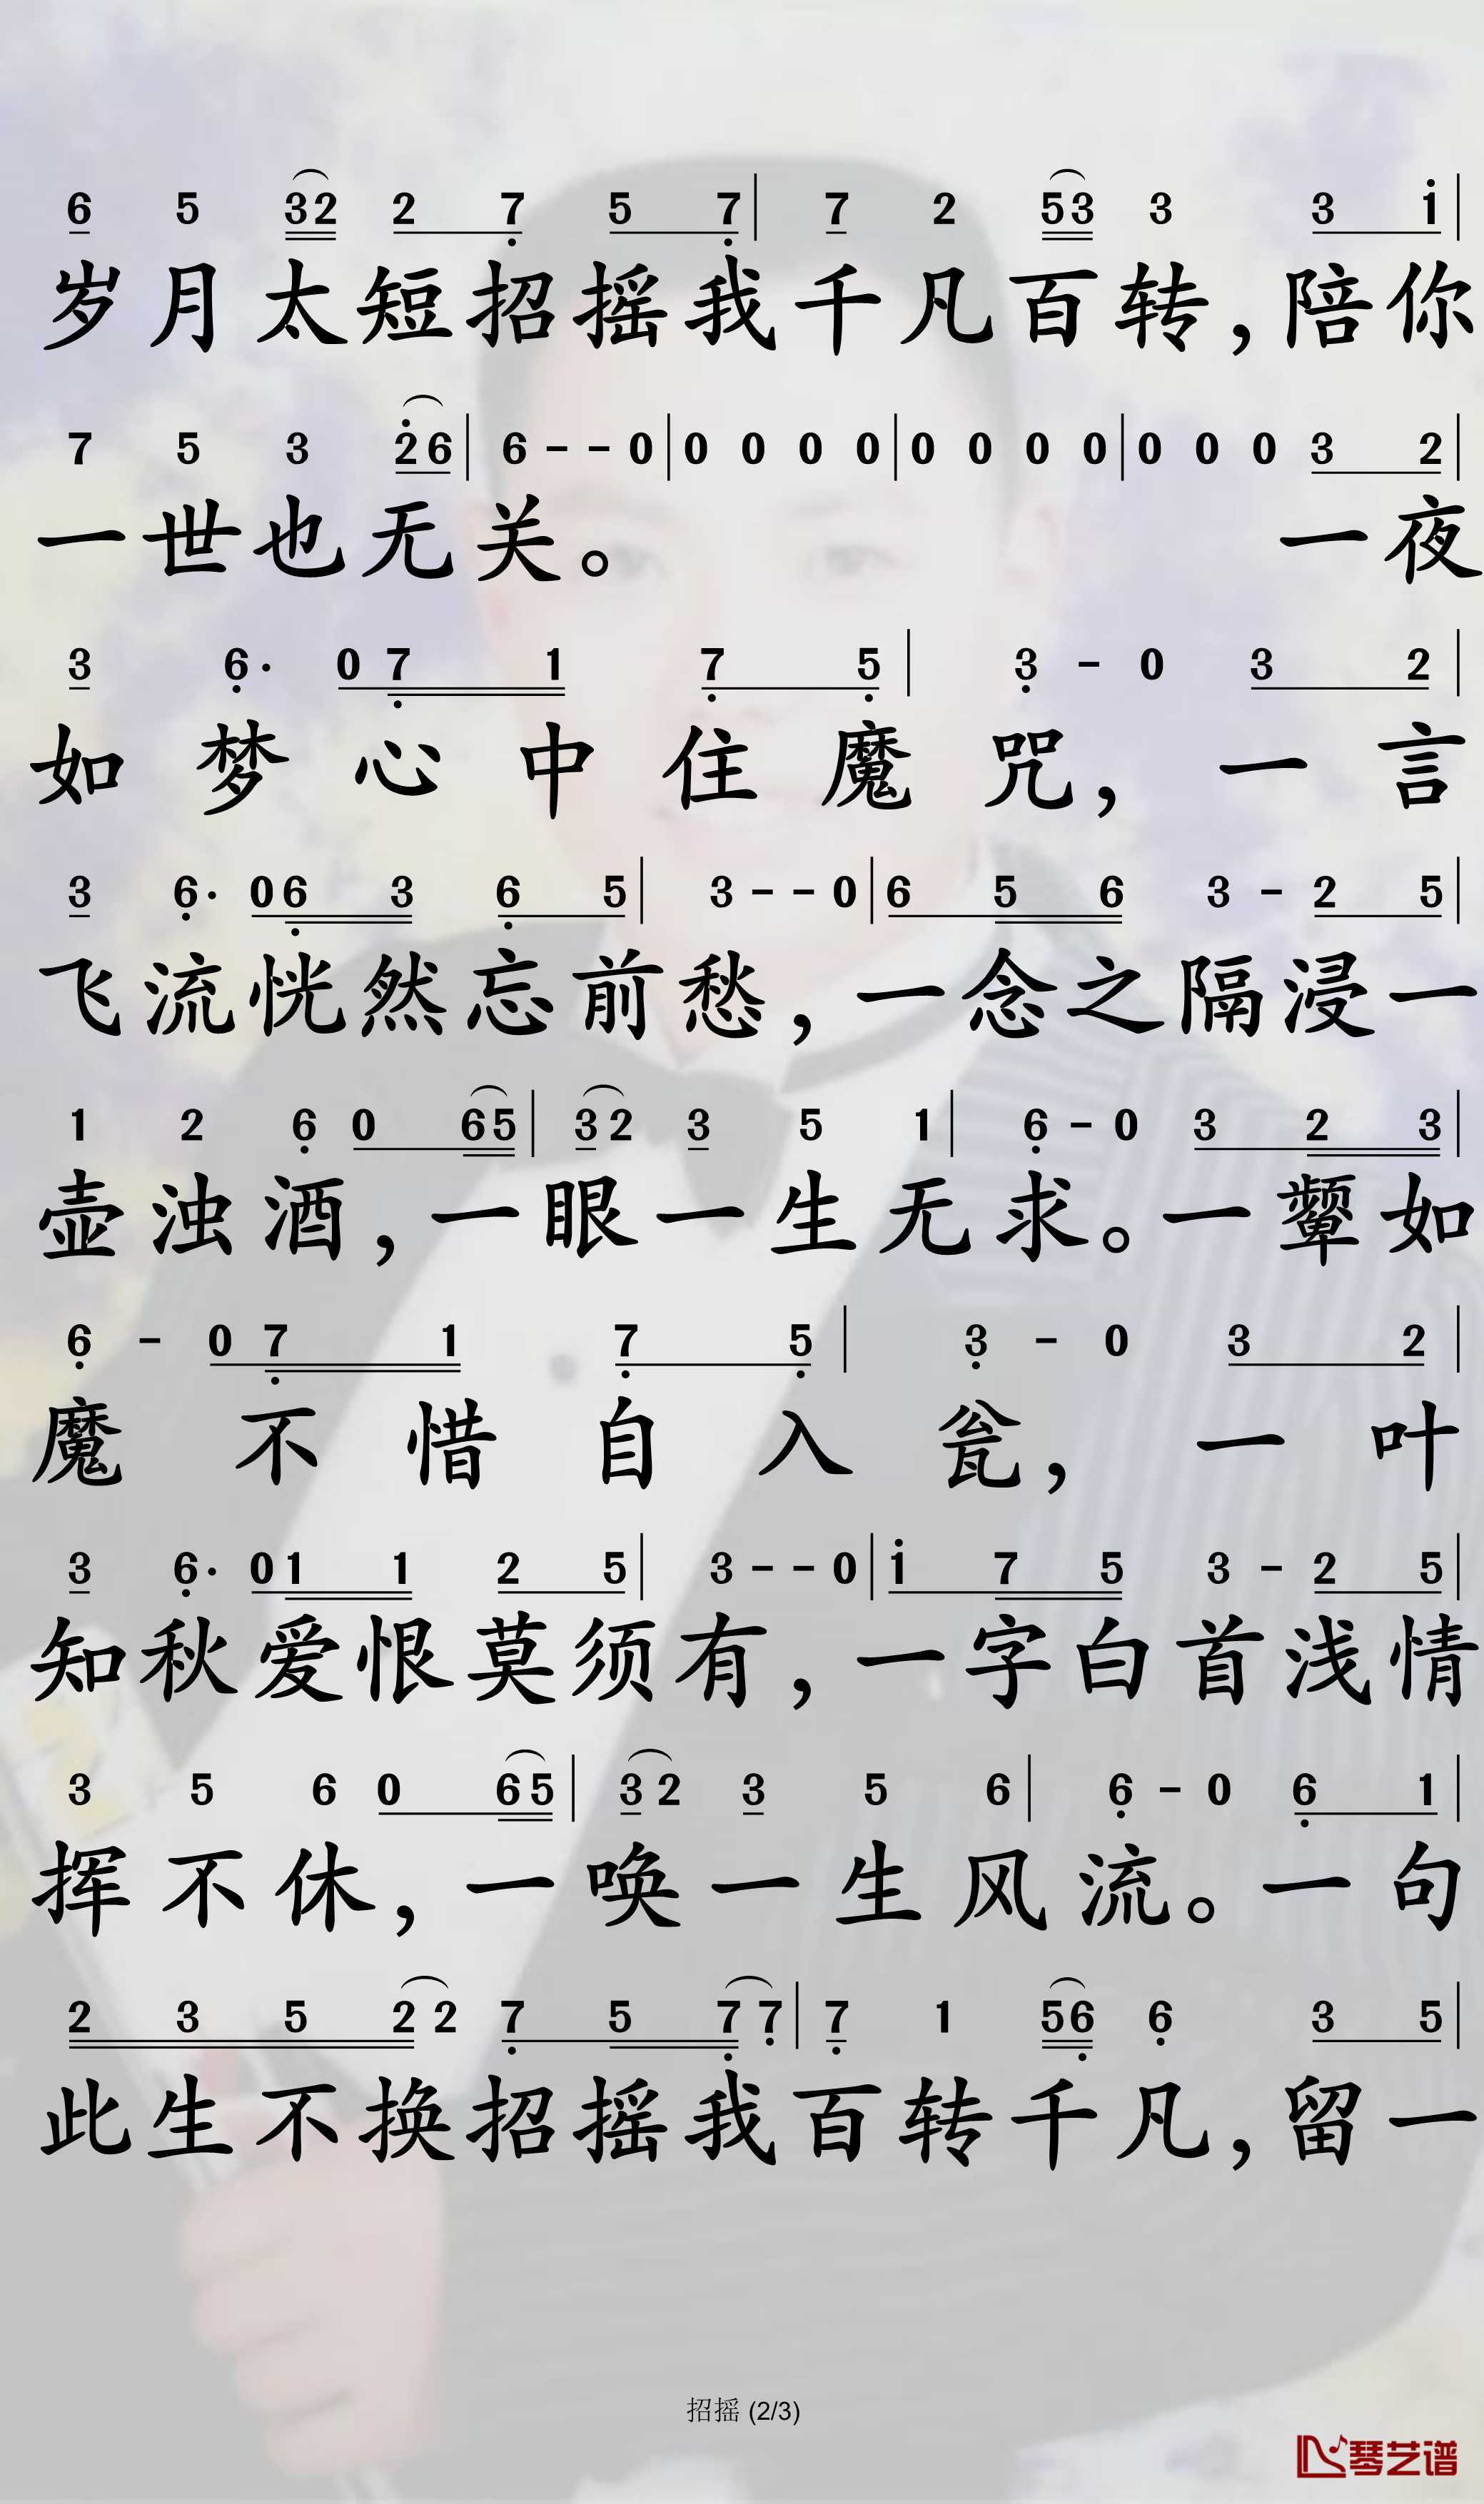 6 5 32 2 7 5 7 | 7 2 53 3 3 i |
岁月太短招摇我千凡百转，陪你
7 5 3 26 | 6 - - 0 | 0 0 0 0 | 0 0 0 0 | 0 0 0 3 2 |
一世也无关。 一夜
3 6· 0 7 1 7 5 | 3 - 0 3 2 |
如梦心中住魔咒，一言
3 6· 0 6 3 6 5 | 3 - - 0 | 6 5 6 3 - 2 5 |
飞流恍然忘前愁，一念之隔浸一
1 2 6 0 65 | 32 3 5 1 | 6 - 0 3 2 3 |
壶浊酒，一眼一生无求。一颦如
6 - 0 7 1 7 5 | 3 - 0 3 2 |
魔不惜自入瓮，一叶
3 6· 0 1 1 2 5 | 3 - - 0 | i 7 5 3 - 2 5 |
知秋爱恨莫须有，一字白首浅情
3 5 6 0 65 | 32 3 5 6 | 6 - 0 6 1 |
挥不休，一唤一生风流。一句
2 3 5 2 2 7 5 7 7 | 7 1 56 6 3 5 |
此生不换招摇我百转千凡，留一
招摇 (2/3)
琴艺谱